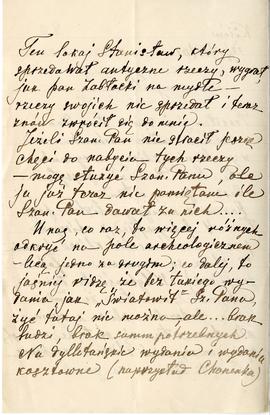 Ten lokaj Stanisław, który
sprzedawał antyczne rzeczy, wygrał
jak pan Zabłocki na mydle —
rzeczy swoich nie sprzedał i teraz
znów zwrócił się do mnie.
Jeżeli Szan. Pan nie stracił jeszcze
chęci do nabycia tych rzeczy
— mogę służyć Szan. Panu ale
ja już teraz nie pamiętam ile
Szan. Pan dawał za nich....
U nas, co raz, to więcej różnych
odkryć na pole archeologicznem
jedno za drugim; co dalej, to
jaśniej widzę że bez takiego wy-
dania jak „Światowit" Sz. Pana,
żyć tutaj nie można — ale... brak
ludzi, brak summ potrzebnych
Na dylletanckie wydania i wydania
kosztowne (naprzykład Chanenka)